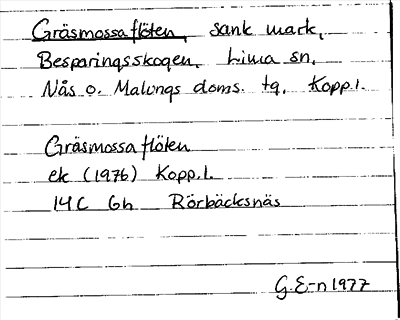 Gräsmossaflöten, sank mark,
Besparingsskogen, Lima sn,
Nås o. Malungs doms. tg, Kopp.l.
Gräsmossaflöten
ek (1976) Kopp.l.
14C 6h Rörbäcksnäs
G.E-n 1977